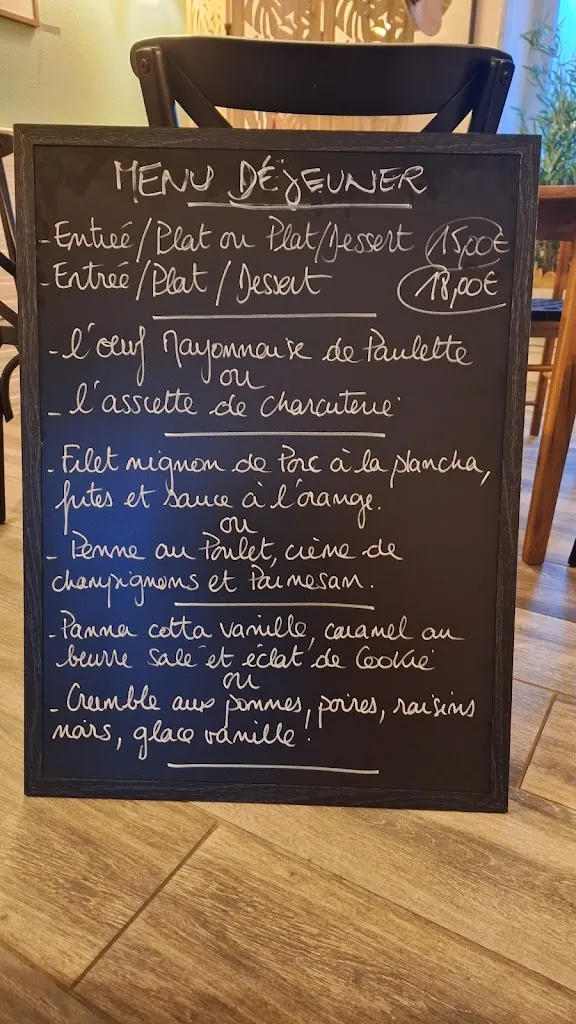 MENU DÉJEUNER
- Entrée/Plat ou Plat/Dessert 15,00€
- Entrée/Plat/Dessert 18,00€
- l'oeuf Mayonnaise de Paulette
ou
- l'assiette de charcuterie
- Filet mignon de Porc à la plancha,
frites et sauce à l'orange.
ou
- Penne au Poulet, crème de
champignons et Parmesan.
- Panna cotta vanille, caramel au
beurre salé et éclat de Cookie
ou
- Crumble aux pommes, poires, raisins
noirs, glace vanille!